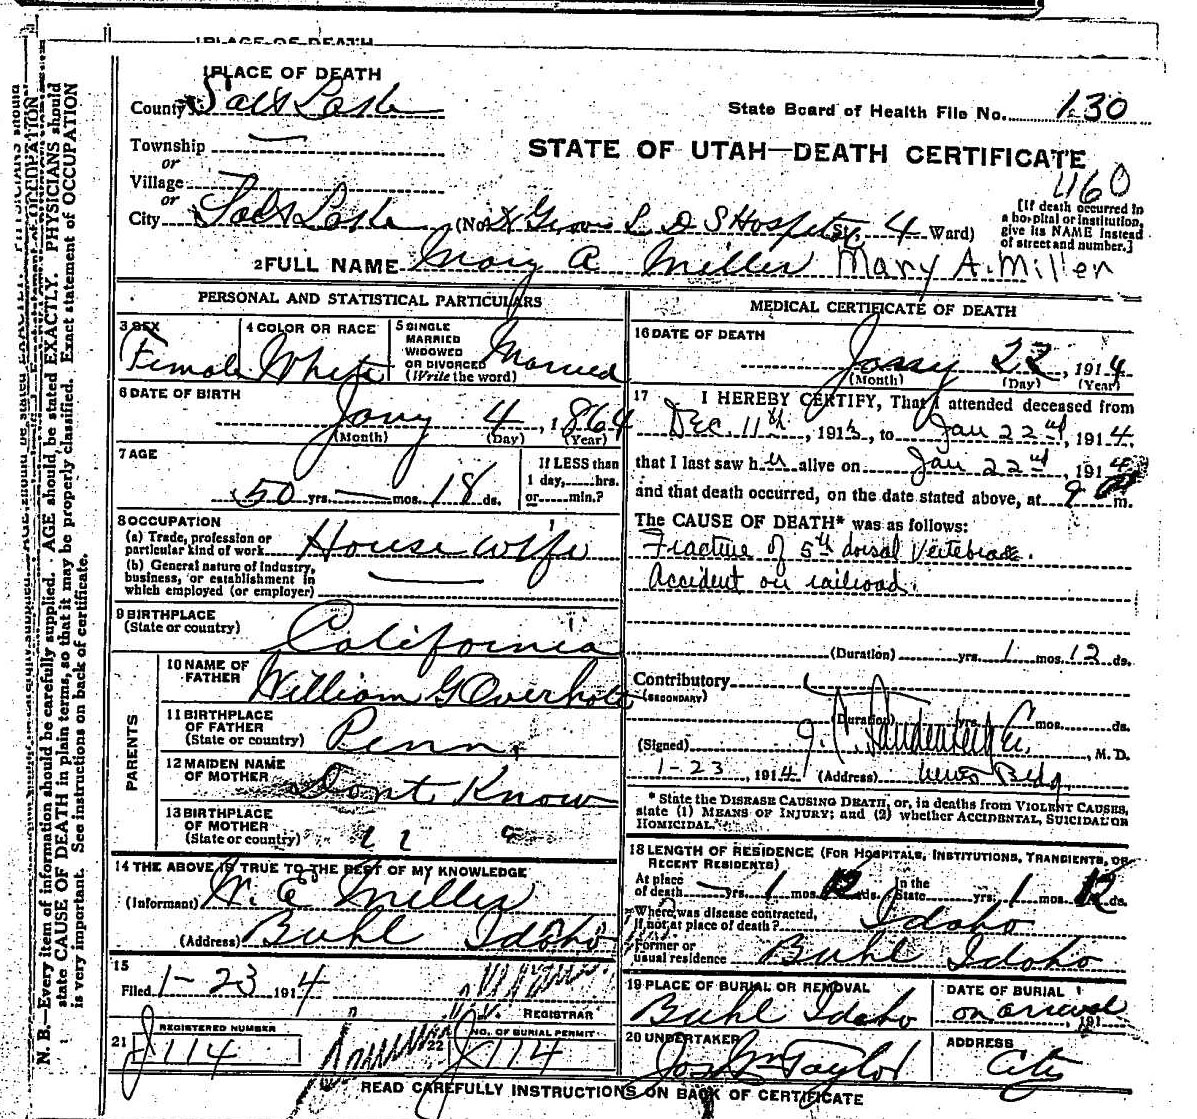 1 PLACE OF DEATH
County Salt Lake
State Board of Health File No. 130
Township —
STATE OF UTAH—DEATH CERTIFICATE
or
Village
460
or
City Salt Lake (No. Groves L D S Hospital St. 4 Ward)
[If death occurred in
a hospital or institution,
give its NAME instead
of street and number.]
2 FULL NAME Mary A Miller Mary A. Miller
PERSONAL AND STATISTICAL PARTICULARS
3 SEX
Female
4 COLOR OR RACE
White
5 SINGLE
MARRIED
WIDOWED
OR DIVORCED
(Write the word)
Married
6 DATE OF BIRTH
Jany 4, 1864
(Month) (Day) (Year)
7 AGE
50 yrs. — mos. 18 ds.
If LESS than
1 day, hrs.
or min.?
8 OCCUPATION
(a) Trade, profession or
particular kind of work House wife
(b) General nature of industry,
business, or establishment in
which employed (or employer) —
9 BIRTHPLACE
(State or country) California
PARENTS
10 NAME OF
FATHER William G Overholt
11 BIRTHPLACE
OF FATHER
(State or country) Penn.
12 MAIDEN NAME
OF MOTHER Dont Know
13 BIRTHPLACE
OF MOTHER
(State or country)
14 THE ABOVE IS TRUE TO THE BEST OF MY KNOWLEDGE
(Informant) W. E. Miller
(Address) Buhl Idaho
15
Filed 1-23 1914
REGISTRAR
21 REGISTERED NUMBER
J 114
22 NO. OF BURIAL PERMIT
J 114
MEDICAL CERTIFICATE OF DEATH
16 DATE OF DEATH
Jany 22, 1914
(Month) (Day) (Year)
17 I HEREBY CERTIFY, That I attended deceased from
Dec 11th, 1913, to Jan 22nd, 1914.
that I last saw her alive on Jan 22nd, 1914
and that death occurred, on the date stated above, at 9 m.
The CAUSE OF DEATH* was as follows:
Fracture of 5th dorsal Vertebrae.
Accident on railroad.
(Duration) yrs. 1 mos. 12 ds.
Contributory
(SECONDARY)
(Duration) yrs. mos. ds.
(Signed) M. D.
1-23, 1914 (Address) Bldg.
* State the DISEASE CAUSING DEATH, or, in deaths from VIOLENT CAUSES,
state (1) MEANS OF INJURY; and (2) whether ACCIDENTAL, SUICIDAL OR
HOMICIDAL.
18 LENGTH OF RESIDENCE (FOR HOSPITALS, INSTITUTIONS, TRANSIENTS, OR
RECENT RESIDENTS)
At place
of death — yrs. 1 mos. 12 ds. In the
State yrs. 1 mos. 12 ds.
Where was disease contracted,
if not at place of death? Idaho
Former or
usual residence Buhl Idaho
19 PLACE OF BURIAL OR REMOVAL
Buhl Idaho
DATE OF BURIAL
on arrival, 191
20 UNDERTAKER
Jos Wm Taylor
ADDRESS
City
READ CAREFULLY INSTRUCTIONS ON BACK OF CERTIFICATE
N. B.—Every item of information should be carefully supplied. AGE should be stated EXACTLY. PHYSICIANS should
state CAUSE OF DEATH in plain terms, so that it may be properly classified. Exact statement of OCCUPATION
is very important. See instructions on back of certificate.